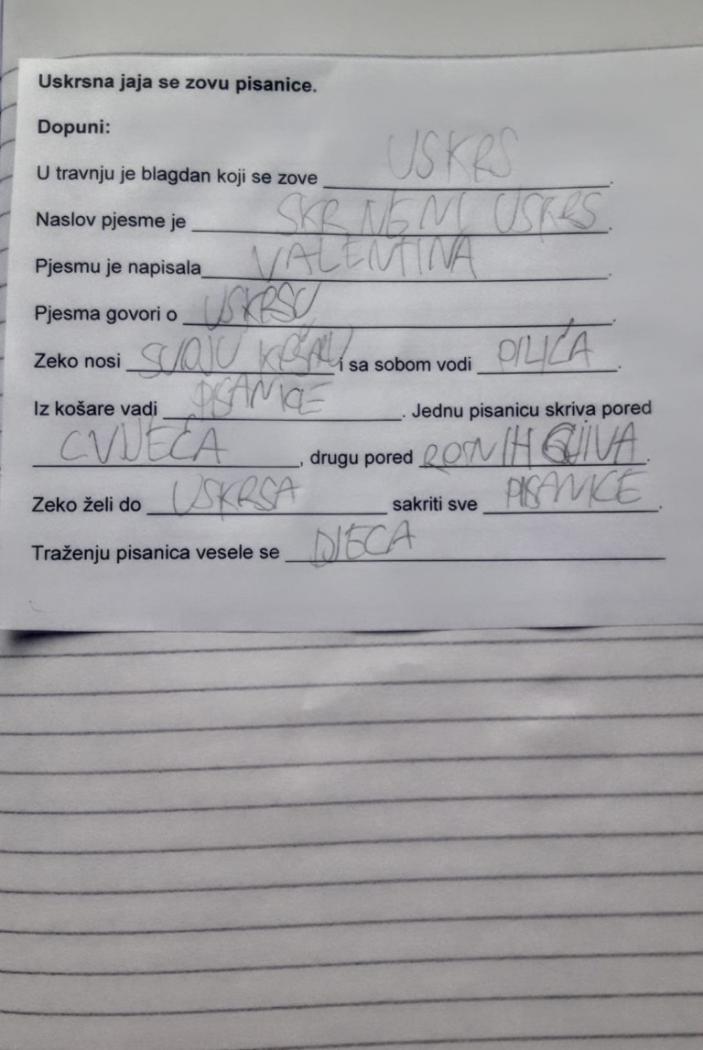 Uskrsna jaja se zovu pisanice.
Dopuni:
U travnju je blagdan koji se zove USKRS.
Naslov pjesme je USKRS.
Pjesmu je napisala VALENTINA.
Pjesma govori o USKRSU.
Zeko nosi SVOJU i sa sobom vodi PILIĆA.
Iz košare vadi PISANICE. Jednu pisanicu skriva pored
CVIJEĆA, drugu pored.
Zeko želi do USKRSA sakriti sve PISANICE.
Traženju pisanica vesele se DJECA